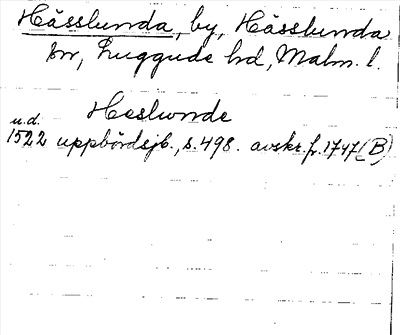 Hässlunda, by, Hässlunda
sn, Luggude hd, Malm. l.
Heslunde
u.d.
1522 uppbördsjb., s. 498. avskr. fr. 1747 (B)